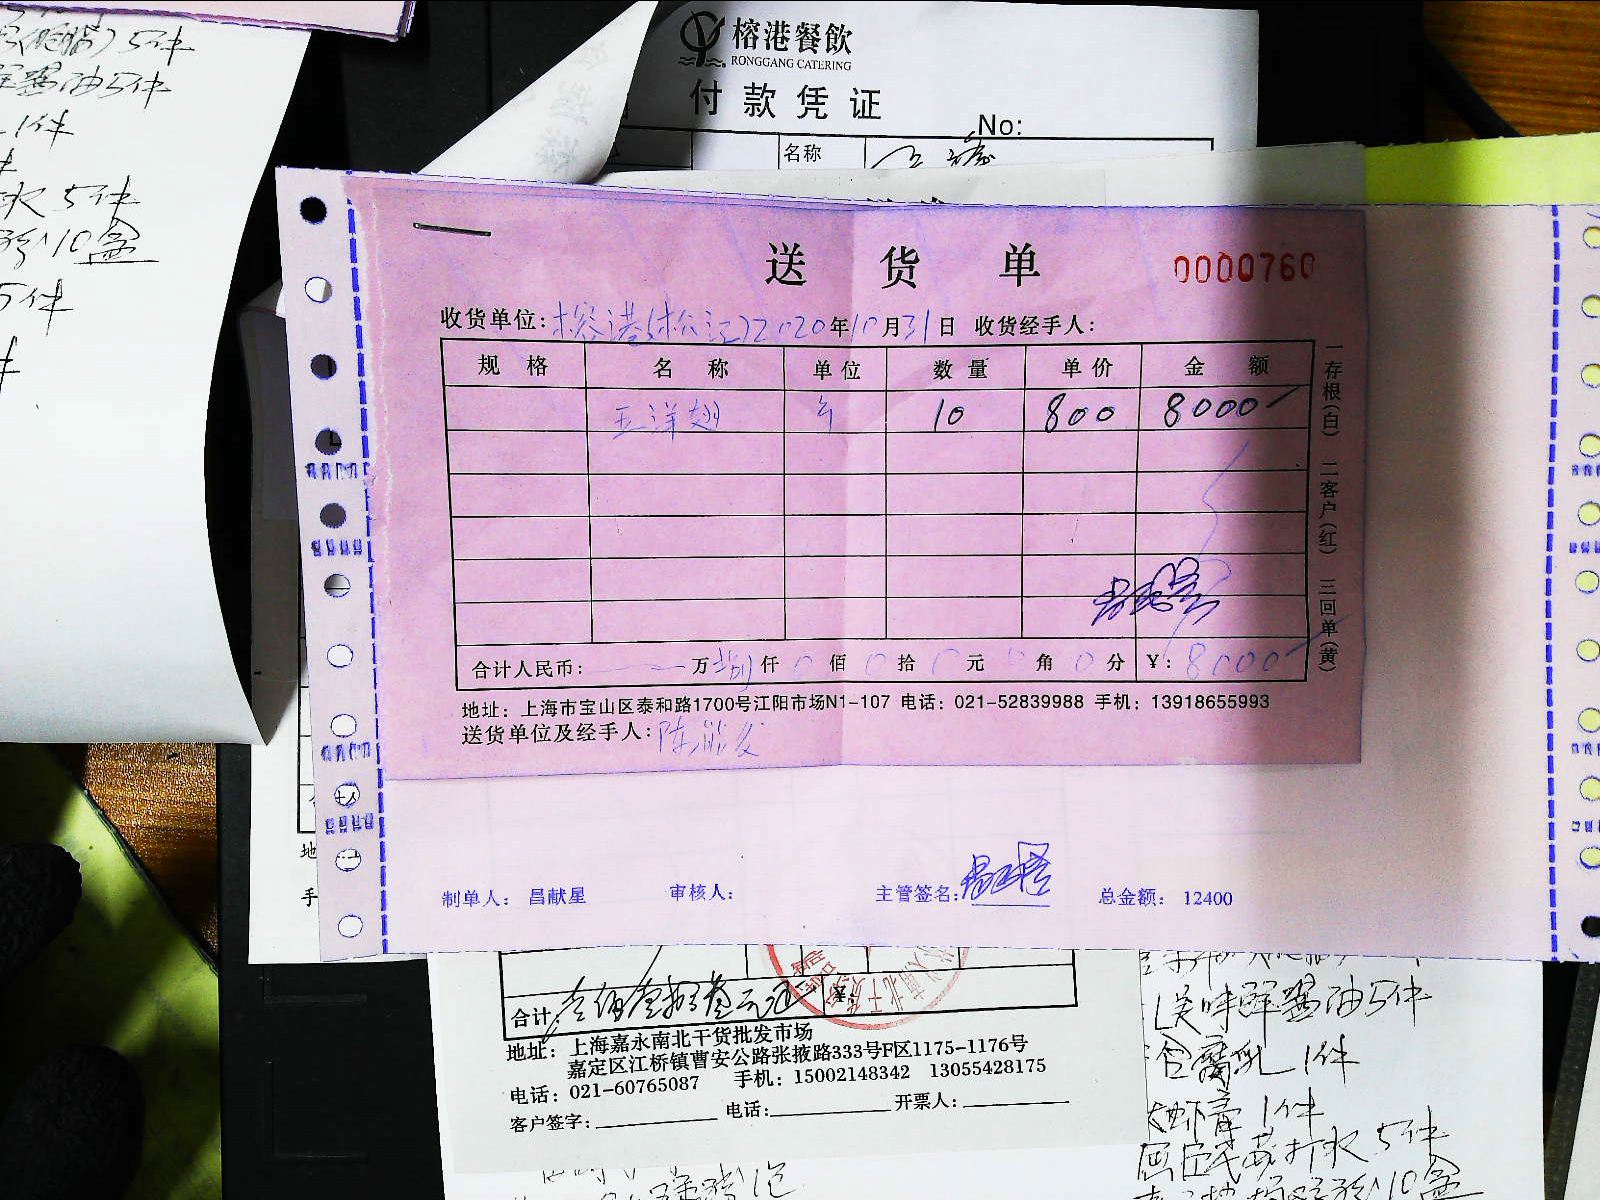 榕港餐飲
RONGGANG CATERING
付款凭证
No:
名称
5件
醬油5件
1件
水 5件
10盒
5件
送货单
0000760
收货单位:榕港(松江)2020年10月31日 收货经手人:
规格 名称 单位 数量 单价 金额
玉洋翅 个 10 800 8000
合计人民币: 万捌仟0佰0拾0元0角0分 ¥: 8000
一存根(白) 二客户(红) 三回单(黄)
地址: 上海市宝山区泰和路1700号江阳市场N1-107 电话: 021-52839988 手机: 13918655993
送货单位及经手人:
制单人: 昌献星 审核人: 主管签名: 总金额: 12400
合计:
地址: 上海嘉永南北干货批发市场
嘉定区江桥镇曹安公路张掖路333号F区1175-1176号
电话: 021-60765087 手机: 15002148342 13055428175
客户签字: 电话: 开票人:
味鲜醬油5件
腐乳 1件
虾膏 1件
水 5件
10盒